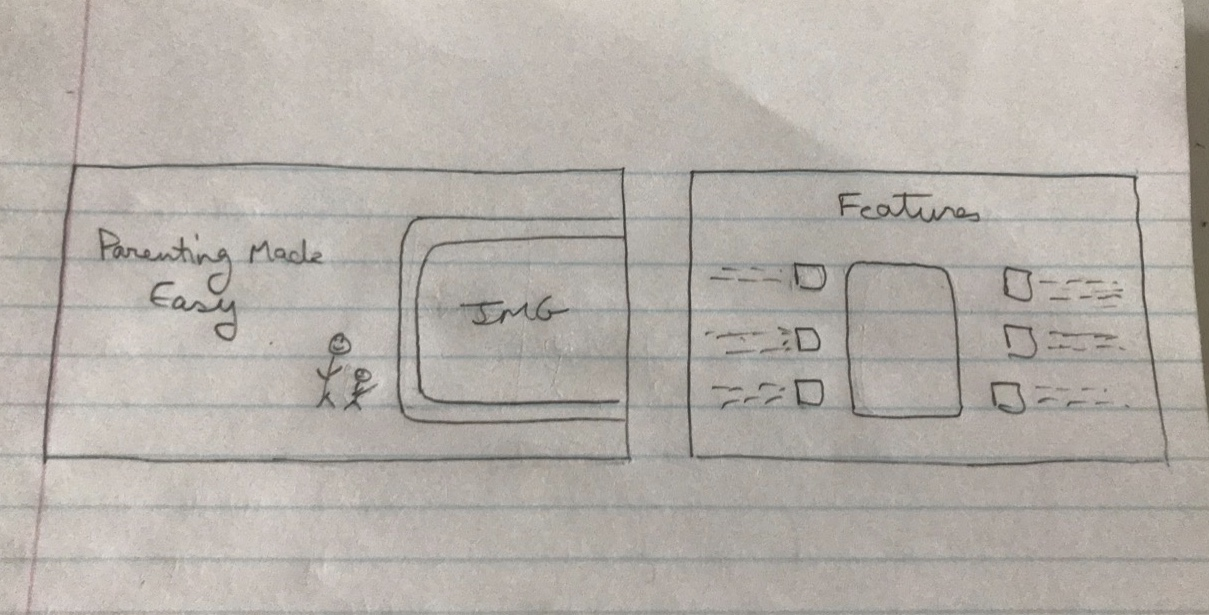 Parenting Made
Easy
IMG
Features